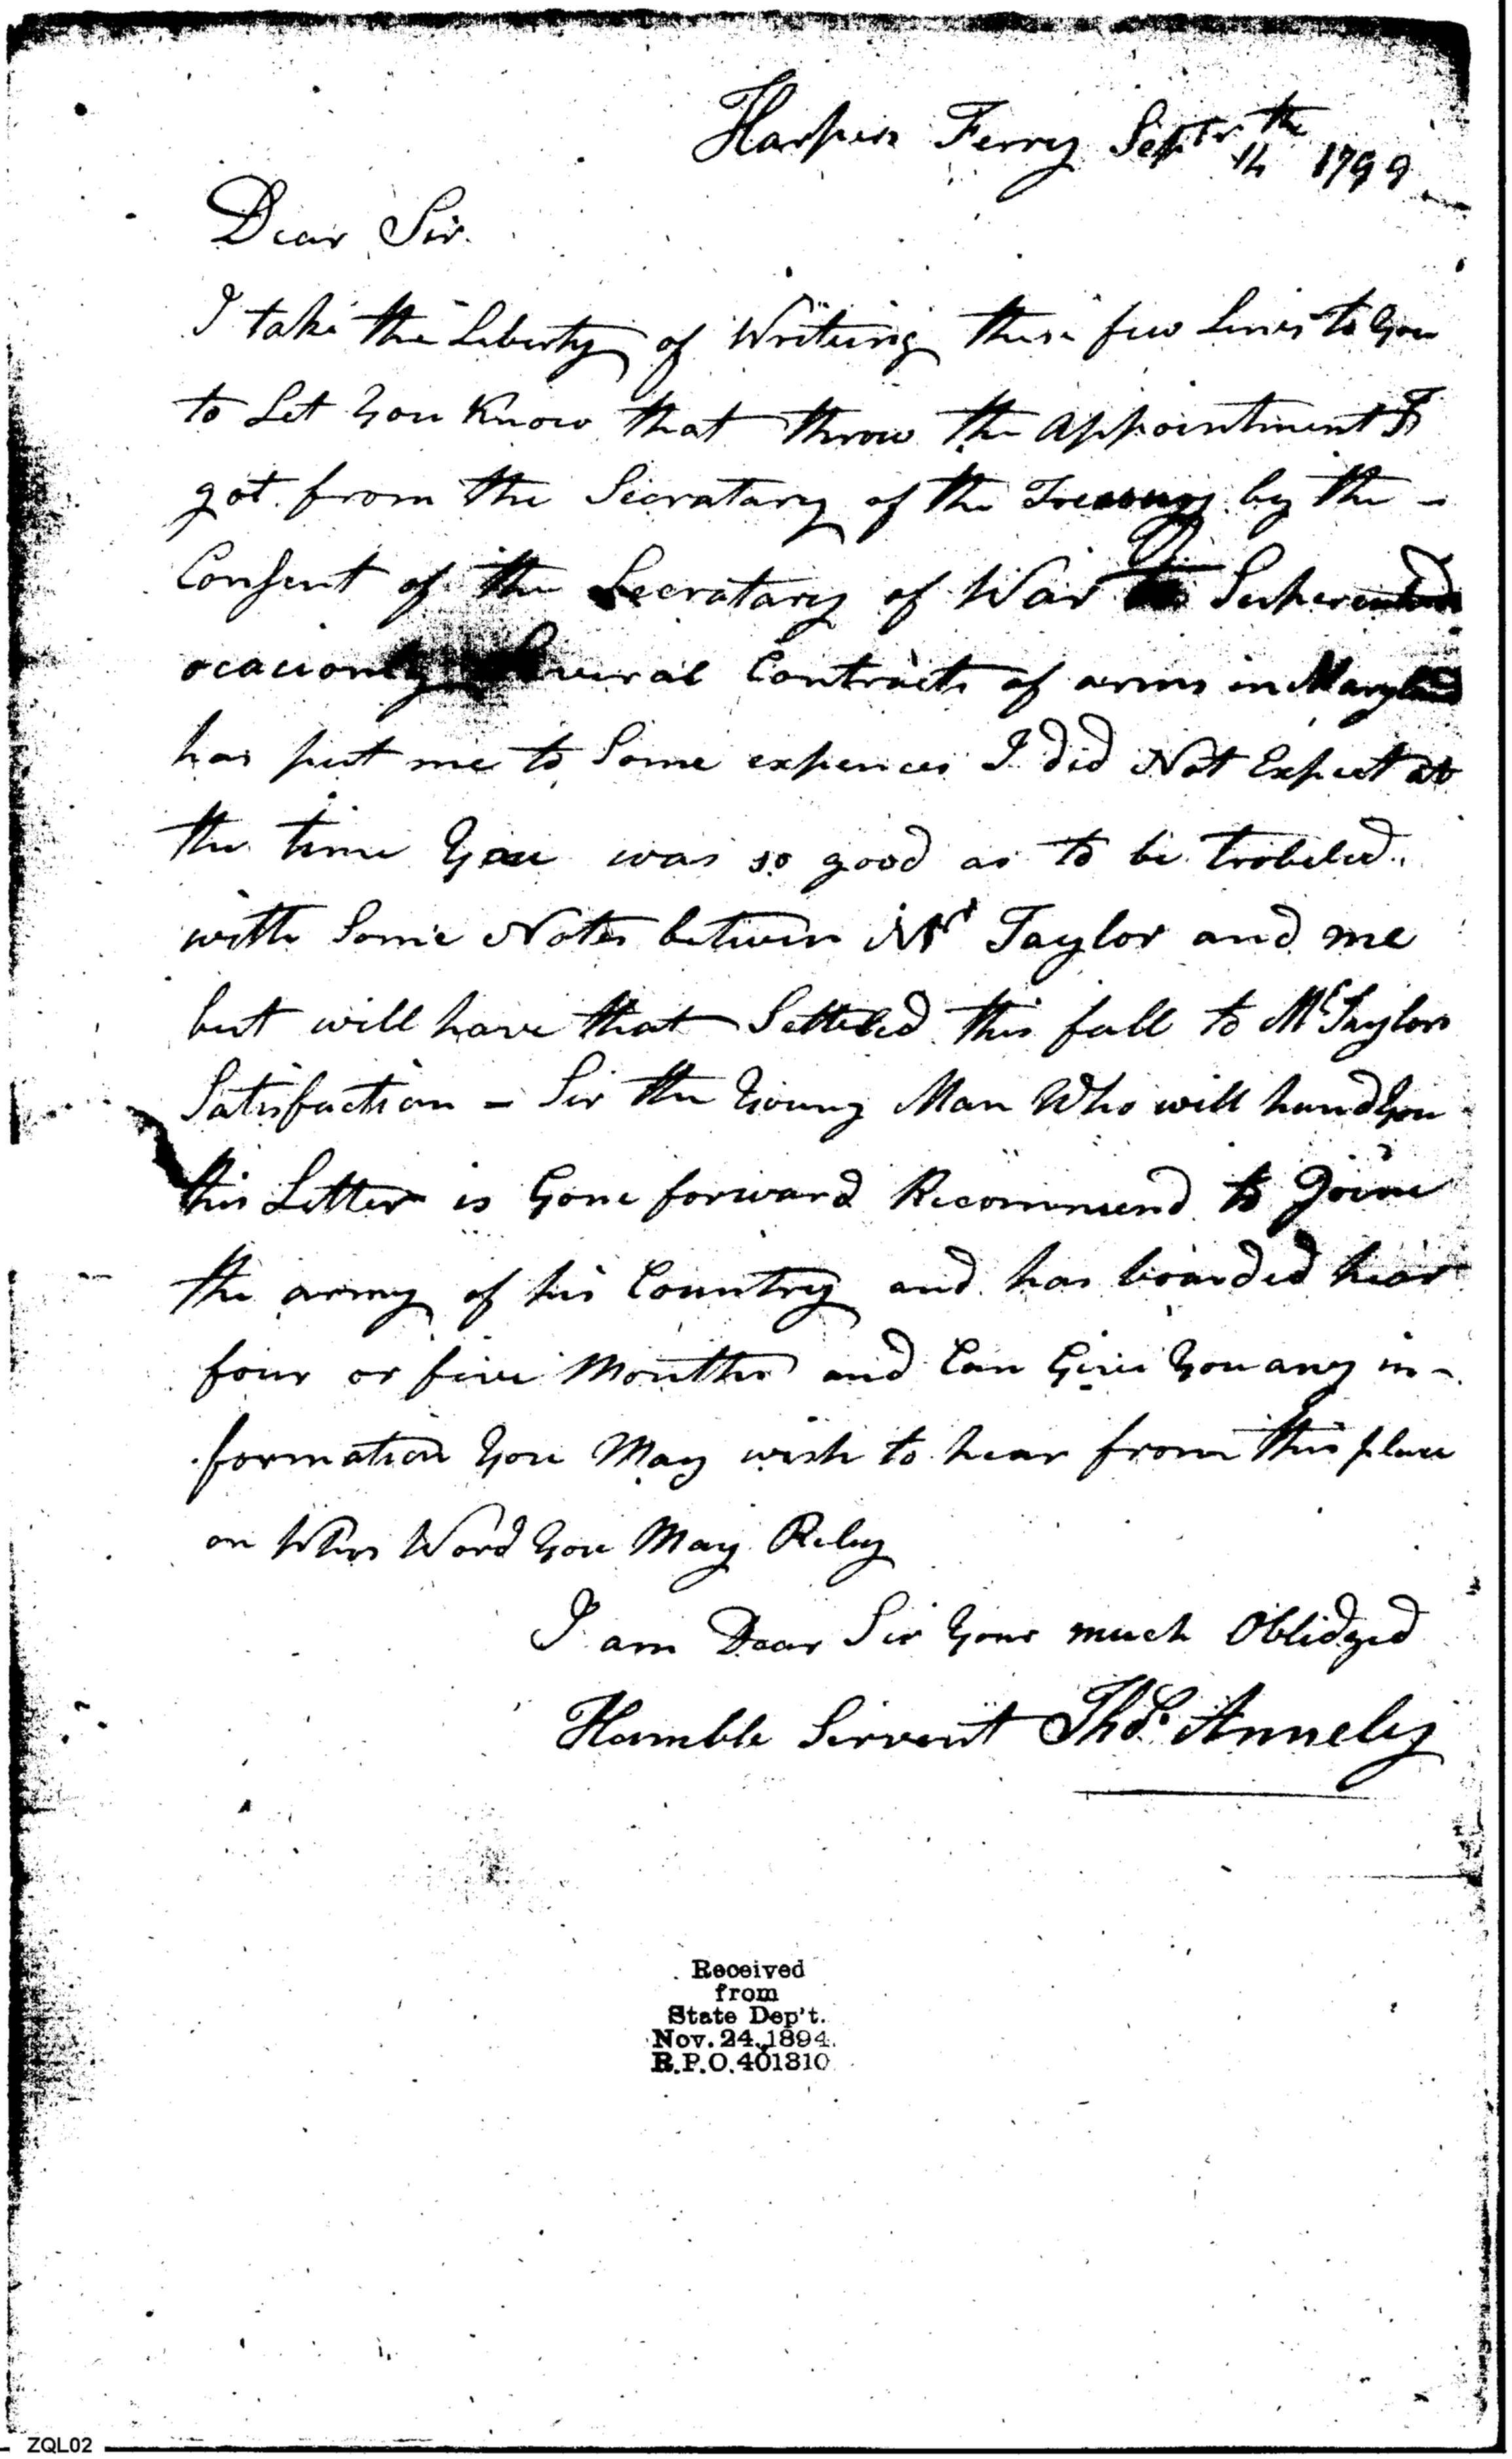 Harpers Ferry Septbr 14th 1799
Dear Sir.
I take the Liberty of Writeing these few Lines to You
to Let You Know that throw the appointment I
got from the Secratary of the Treasury by the -
Consent of the Secratary of War to Superentend
ocacionly Several Contracts of arms in Maryland
has put me to Some expences I did Not Expect at
the time You was so good as to be trobeled
with Some Notes between Mr Taylor and me
but will have that Setteled this fall to Mr Taylors
Satisfaction - Sir the Young Man Who will hand You
this Letter is Gone forward Recommend to Joine
the army of his Country and has boarded hear
four or five Months and Can Give You any in-
formation You May wish to hear from this place
on Whos Word You May Rely
I am Dear Sir Your much Oblidged
Humble Servent Thos. Annely
Received
from
State Dep't.
Nov. 24, 1894.
R.P.O. 401810
ZQL02